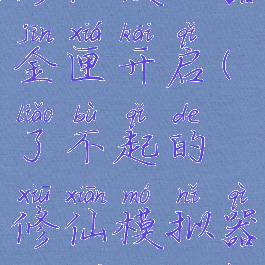 jīn xiá kāi qǐ
金匣开启(
liǎo bù qǐ de
了不起的
xiū xiān mó nǐ qì
修仙模拟器